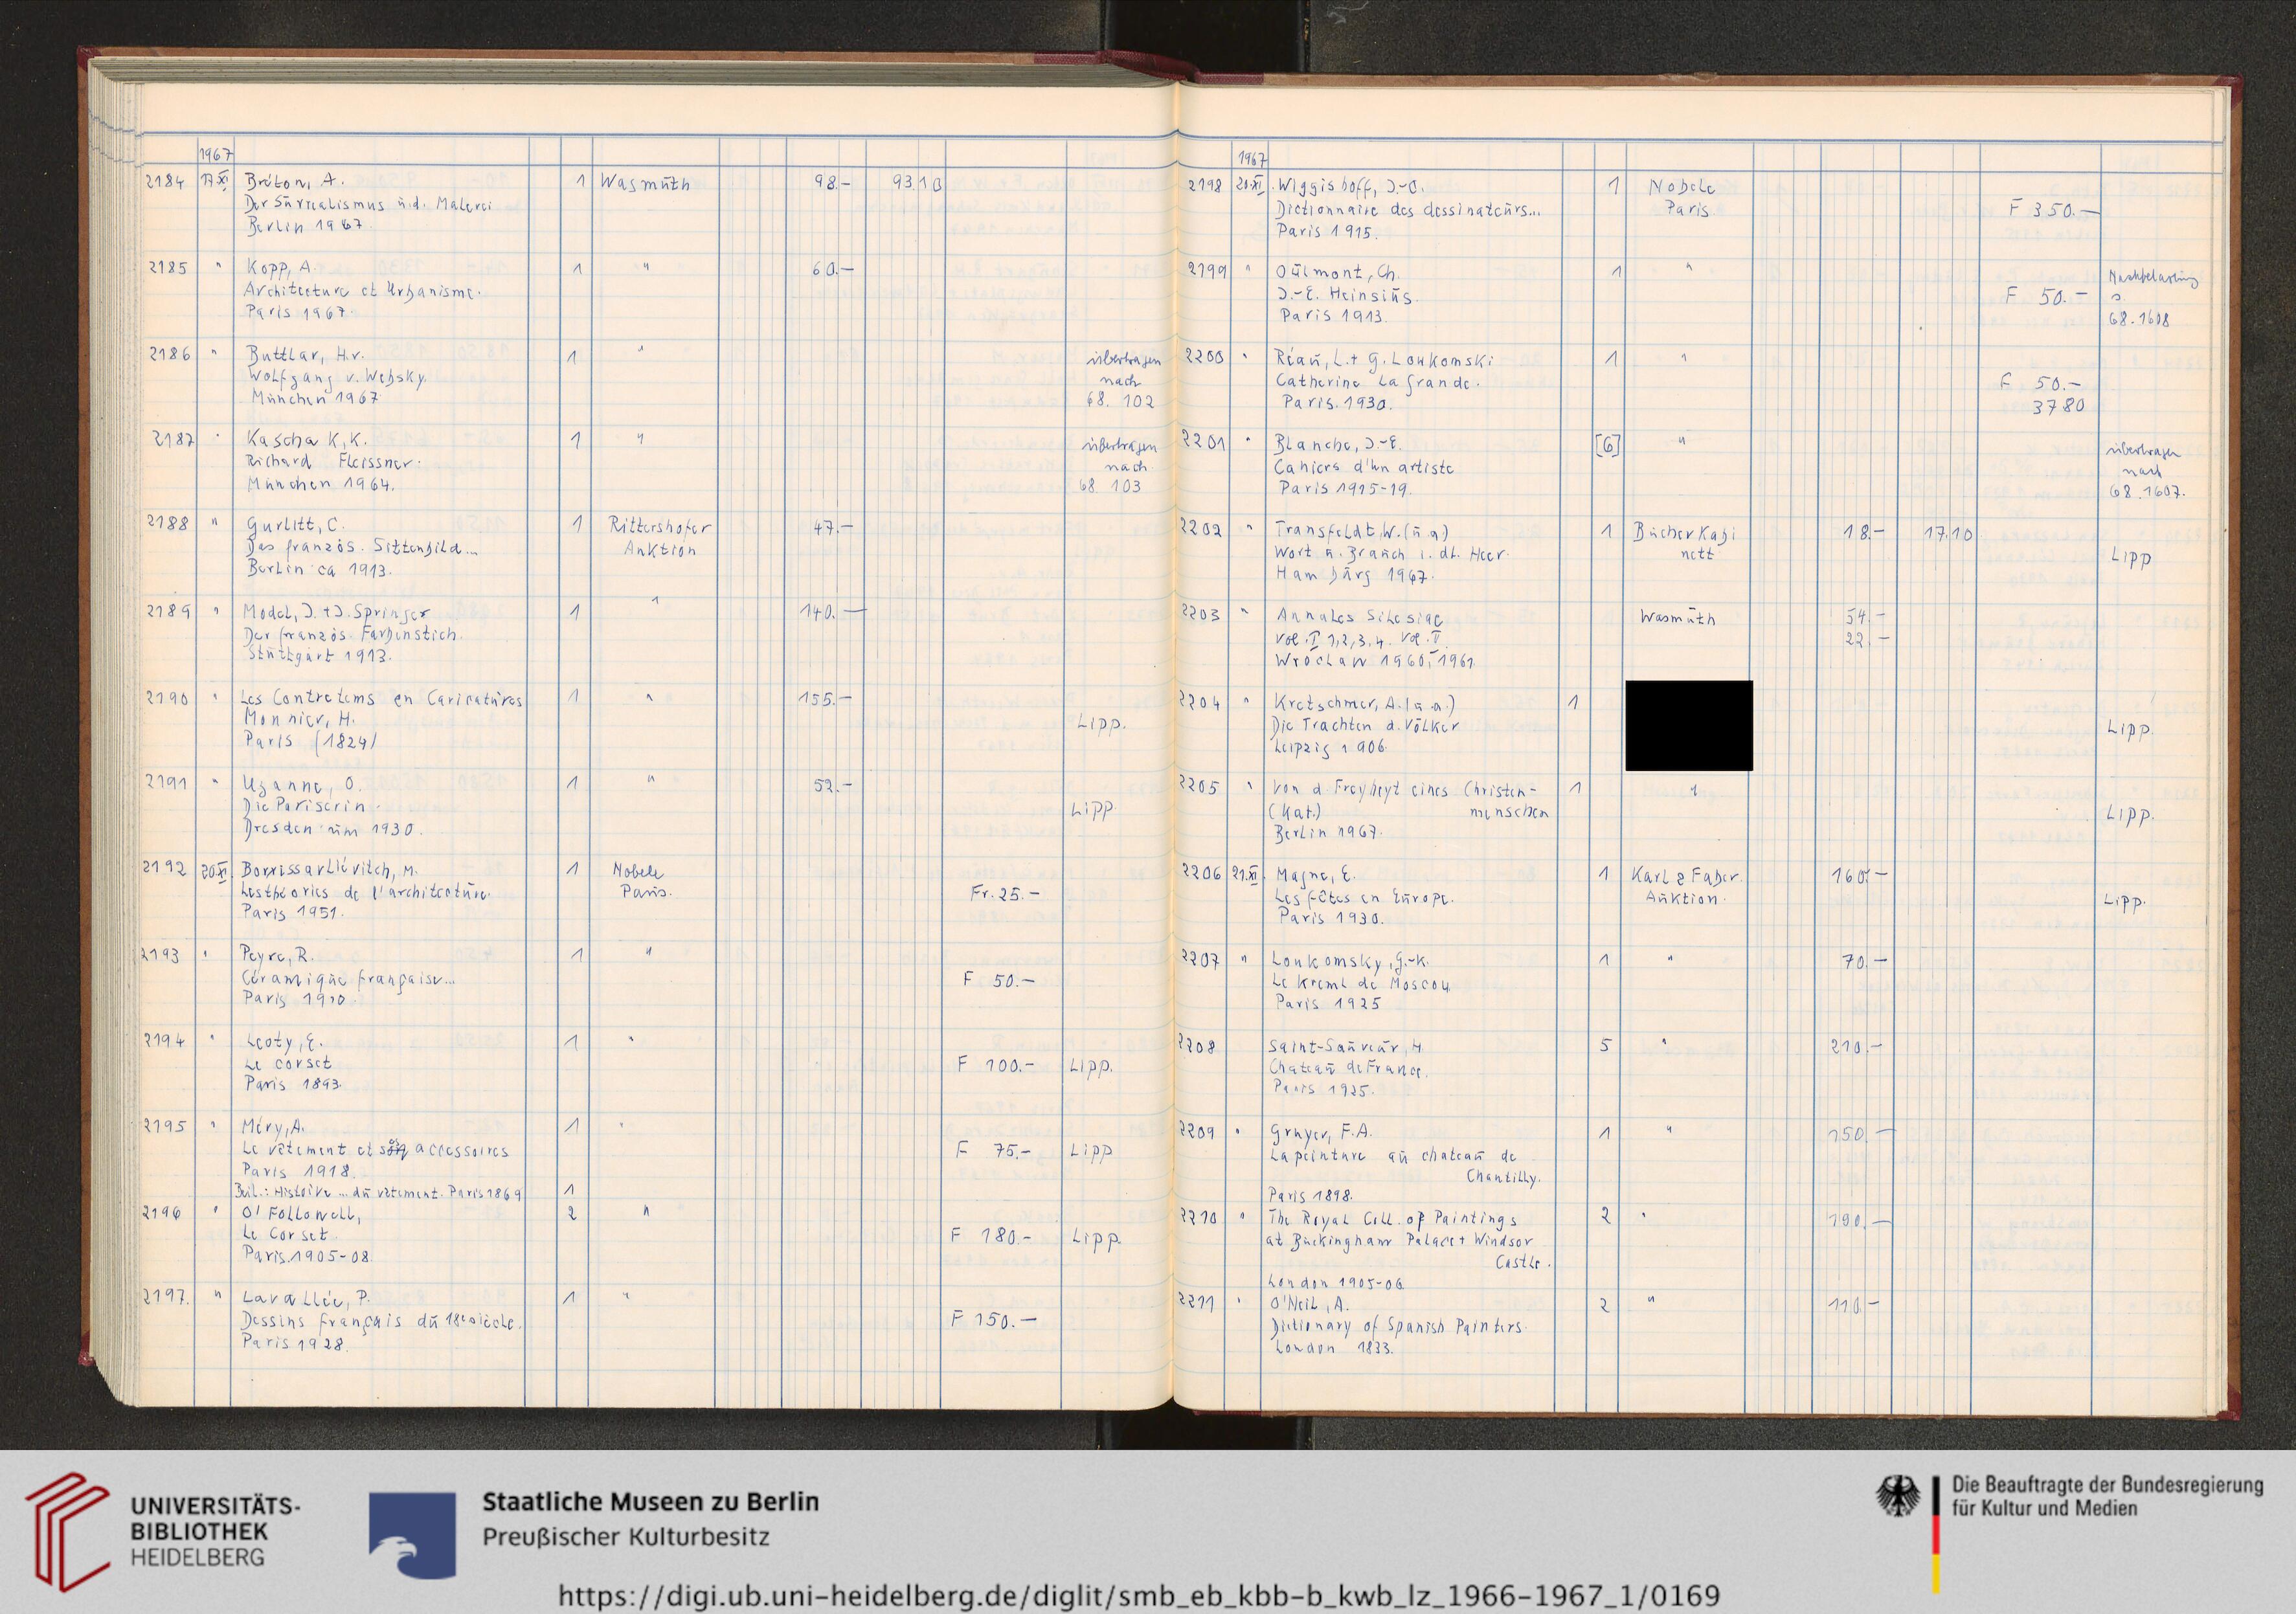 1967
2184 17.XI. Breton, A. 1 Wasmuth 98.- 93.10
Der Surrealismus u. d. Malerei
Berlin 1967.
2185 " Kopp, A. 1 " 60.-
Architecture et Urbanisme.
Paris 1967.
2186 " Buttlar, H.v. 1 " übertragen
Wolfgang v. Websky. nach
München 1967 68. 102
2187 " Kascha K, K. 1 " übertragen
Richard Fleissner. nach
München 1964. 68 103
2188 " Gurlitt, C. 1 Rittershofer 47.-
Das französ. Sittenbild... Auktion
Berlin ca 1913.
2189 " Model, J. + J. Springer 1 " 140.-
Der französ. Farbenstich.
Stuttgart 1913.
2190 " Les Contretems en Caricatures 1 " 155.-
Monnier, H. Lipp.
Paris (1824)
2191 " Uzanne, O. 1 " 52.-
Die Pariserin. Lipp.
Dresden um 1930.
2192 20.XI. Borissavliévitch, M. 1 Nobele
Les théories de l'architecture. Paris. Fr. 25.-
Paris 1951.
2193 " Peyre, R. 1 "
Céramique française... F 50.-
Paris 1910.
2194 " Leoty, E. 1 "
Le corset F 100.- Lipp.
Paris 1893.
2195 " Méry, A. 1 "
Le vêtement et ses accessoires F 75.- Lipp
Paris 1918.
Beil.: Histoire ... du vêtement. Paris 1869 1
2196 " O'Followell, 2 "
Le Corset. F 180.- Lipp.
Paris. 1905-08.
2197. " Lavallée, P. 1 "
Dessins français du 18e siècle. F 150.-
Paris 1928.
1967
2198 20.XI. Wiggishoff, J.-C. 1 Nobele
Dictionnaire des dessinateurs... Paris F 350.-
Paris 1915.
2199 " Oulmont, Ch. 1 " Nachbelastung
J.-E. Heinsius. F 50.- s.
Paris 1913. 68.1608
2200 " Réau, L. + G. Loukomski 1 "
Catherine la Grande. F 50.-
Paris. 1930. 3780
2201 " Blanche, J.-E. [6] " übertragen
Cahiers d'un artiste nach
Paris 1915-19. 68.1607.
2202 " Transfeldt, W. (u.a.) 1 Bücherkabi 18.- 17.10
Wort u. Brauch i. dt. Heer. nett Lipp
Hamburg 1967.
2203 " Annales Silesiae Wasmuth 54.-
Vol. I 1,2,3,4. Vol. II. 22.-
Wroclaw 1960, 1961
2204 " Kretschmer, A. (u.a.) 1
Die Trachten d. Völker Lipp.
Leipzig 1906.
2205 " Von d. Freyheyt eines Christen- 1 "
(Kat.) menschen Lipp.
Berlin 1967.
2206 21.XI. Magne, E. 1 Karl & Faber. 160.-
Les fêtes en Europe. Auktion. Lipp.
Paris 1930.
2207 " Loukomsky, G.-K. 1 " 70.-
Le Kreml de Moscou
Paris 1925
2208 Saint-Sauveur, H 5 " 210.-
Chateau de France.
Paris 1925.
2209 " Gruyer, F.A. 1 " 150.-
La peinture au chateau de
Chantilly.
Paris 1898.
2210 " The Royal Coll. of Paintings 2 " 190.-
at Buckingham Palace + Windsor
Castle.
London 1905-06
2211 " O'Neil, A. 2 " 110.-
Dictionary of Spanish Painters.
London 1833.
UNIVERSITÄTS-
BIBLIOTHEK
HEIDELBERG
Staatliche Museen zu Berlin
Preußischer Kulturbesitz
Die Beauftragte der Bundesregierung
für Kultur und Medien
https://digi.ub.uni-heidelberg.de/diglit/smb_eb_kbb-b_kwb_lz_1966-1967_1/0169